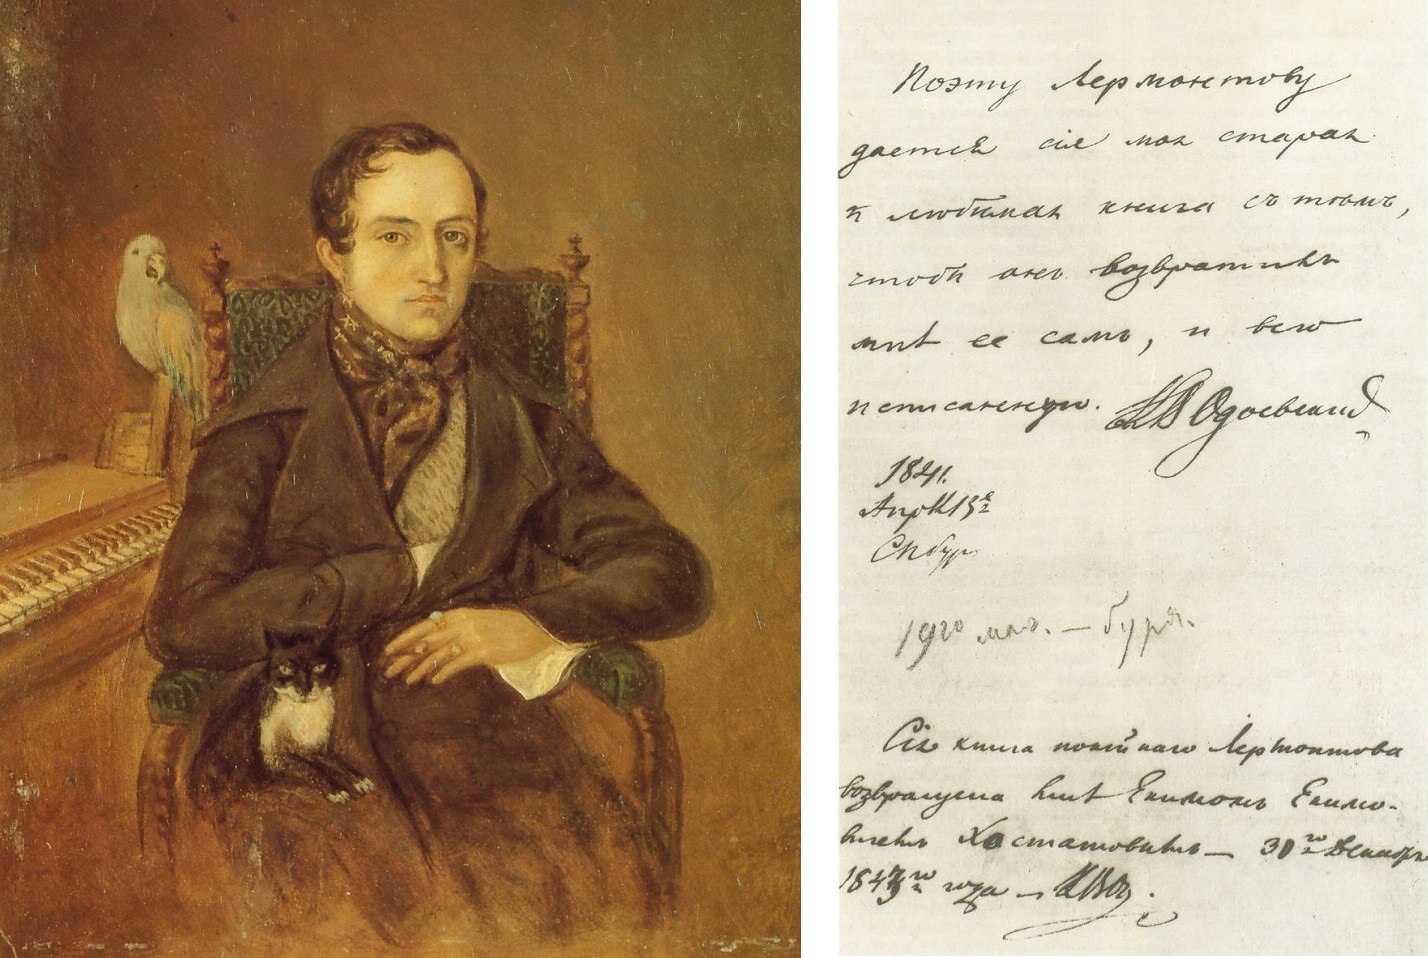 Поэту Лермонтову
дается сіе моя старая
и любимая книга съ тѣмъ,
чтобы онъ возвратилъ
мнѣ ее самъ, и всю
исписанную. К В Одоевский
1841.
Апрѣл 13е
СПбург
19го мая. – буря.
Сія книга покойнаго Лермонтова
возвращена мнѣ Екимомъ Екимо-
вичемъ Хостатовымъ – 30го Декабря
1843го года – К В О.